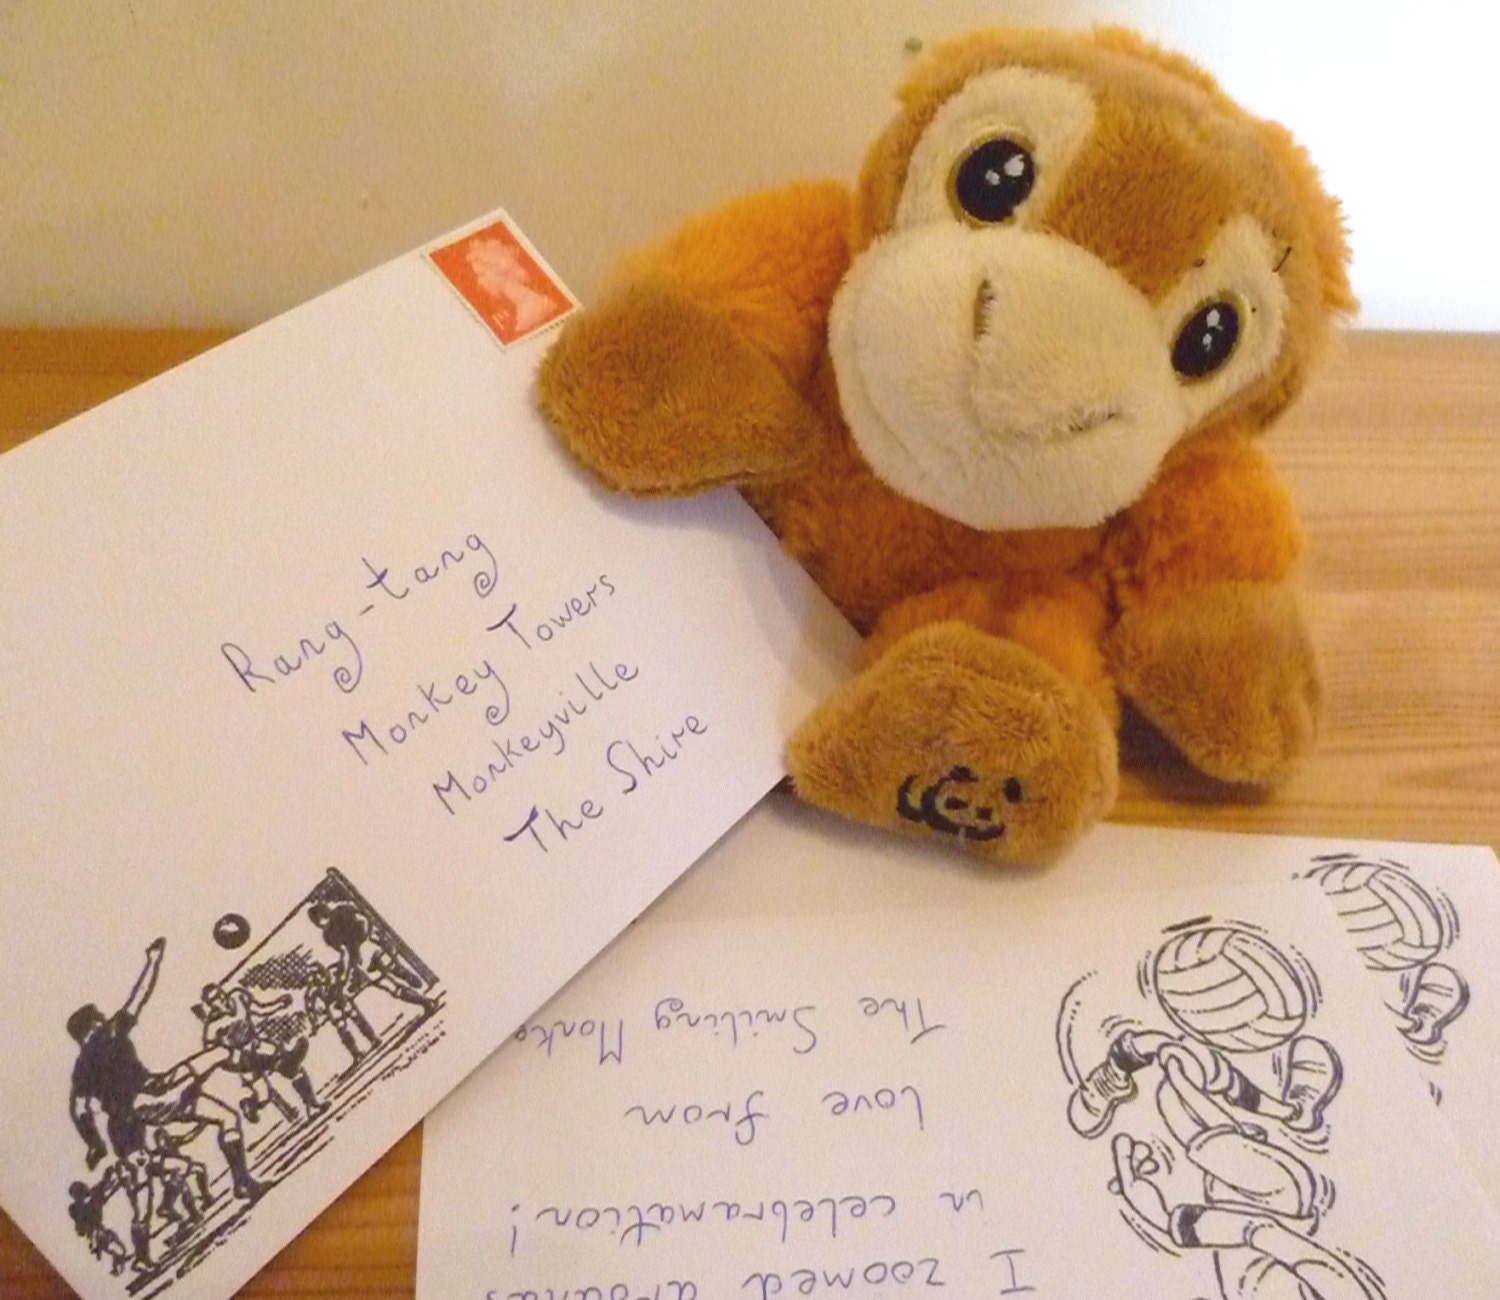 Rang-tang
Monkey Towers
Monkeyville
The Shire
I zoomed arounds
in celebramation!
Love from
The Smiling Monke